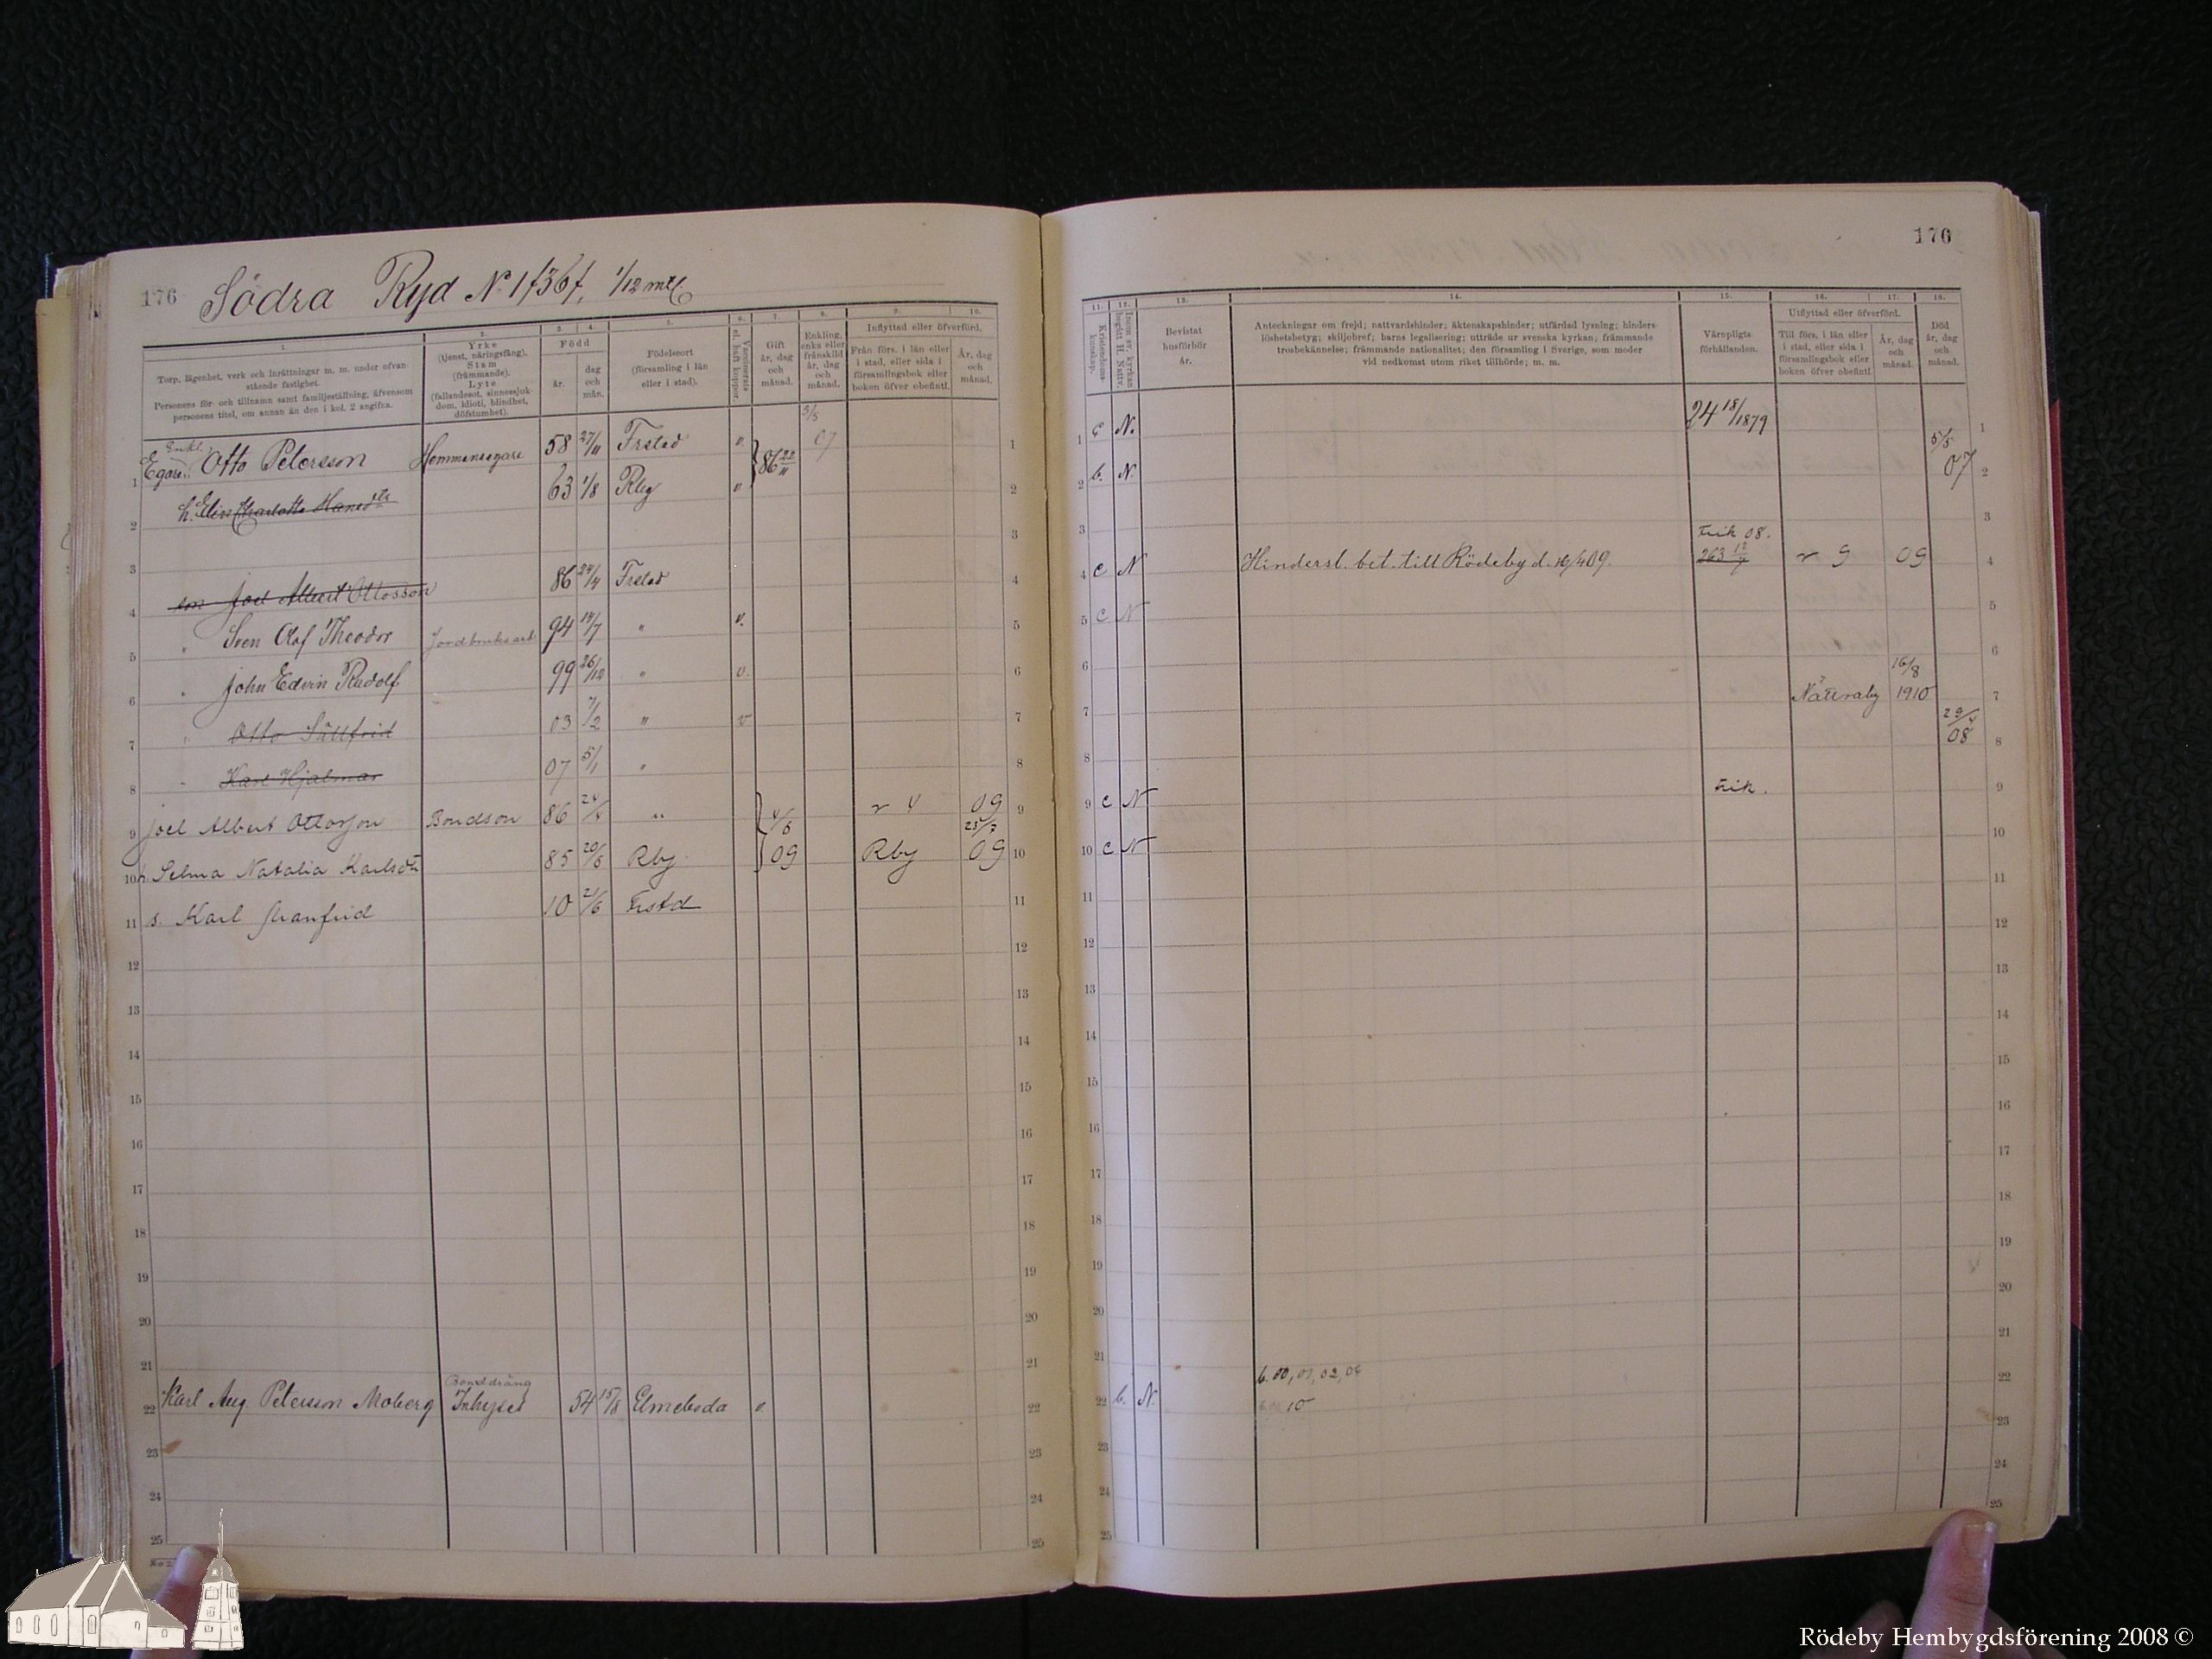 176 Södra Ryd No 1 f36f, 1/12 mtl
1. 2. 3. 4. 5. 6. 7. 8. 9. 10.
Torp, lägenhet, verk och inrättningar m. m. under ofvan stående fastighet.
Personens för- och tillnamn samt familjeställning, äfvensom personens titel, om annan än den i kol. 2 angifna.
Yrke (tjenst, näringsfång). Stam (främmande). Lyte (fallandesot, sinnessjukdom, idioti, blindhet, döfstumhet).
Född år. dag och mån.
Födelseort (församling i län eller i stad).
Vaccinerats el. haft koppor.
Gift år, dag och månad.
Enkling, enka eller frånskild år, dag och månad.
Inflyttad eller öfverförd.
Från förs. i län eller i stad, eller sida i församlingsbok eller boken öfver obefintl.
År, dag och månad.
Enkl. 3/5
Egare: Otto Petersson Hemmansegare 58 27/11 Frstad v. 86 22/11 07 1
1 h. Elin Charlotta Hansdtr 63 1/8 Rby v 2
2 3
3 son Joel Albert Ottosson 86 24/4 Frstad 4
4 " Sven Olof Theodor Jordbruksarb 94 14/7 " v. 5
5 " John Edvin Rudolf 99 26/12 " v. 6
6 " Otto Sättfrid 03 7/2 " v 7
7 " Karl Hjalmar 07 5/1 " 8
8 Joel Albert Ottosson Bondson 86 24/4 " r 4 09 9
9 h Selma Natalia Karlsdtr 85 20/6 Rby 4/6 09 Rby 25/7 09 10
10 s. Karl Manfrid 10 21/6 Frstd 11
11 12
12 13
13 14
14 15
15 16
16 17
17 18
18 19
19 20
20 21
21 Bonddräng
Karl Aug. Petersson Moberg Inhyses 54 15/8 Elmeboda v. 22
22 23
23 24
24 25
25
176
11. 12. 13. 14. 15. 16. 17. 18.
Kristendomskunskap.
Inom sv. kyrkan begått H. Nattv.
Bevistat husförhör år.
Anteckningar om frejd; nattvardshinder; äktenskapshinder; utfärdad lysning; hinderslöshetsbetyg; skiljobref; barns legalisering; utträde ur svenska kyrkan; främmande trosbekännelse; främmande nationalitet; den församling i Sverige, som moder vid nedkomst utom riket tillhörde; m. m.
Värnpligtsförhållanden.
Utflyttad eller öfverförd.
Till förs. i län eller i stad, eller sida i församlingsbok eller boken öfver obefintl.
År, dag och månad.
Död år, dag och månad.
1 c N. 24 18/1879 1
2 b. N. 5/5 07 2
3 3
Frik 08.
4 c N Hindersl. bet. till Rödeby d. 16/4 09. 263 12/7 r 9 09 4
5 c N 5
6 16/8 6
7 Nättraby 1910 7
8 29/4 08 8
9 c N Frik. 9
10 c N 10
11 11
12 12
13 13
14 14
15 15
16 16
17 17
18 18
19 19
20 20
21 21
b. 00, 01, 02, 04
22 b. N. 10 22
23 23
24 24
25 25
Rödeby Hembygdsförening 2008 ©